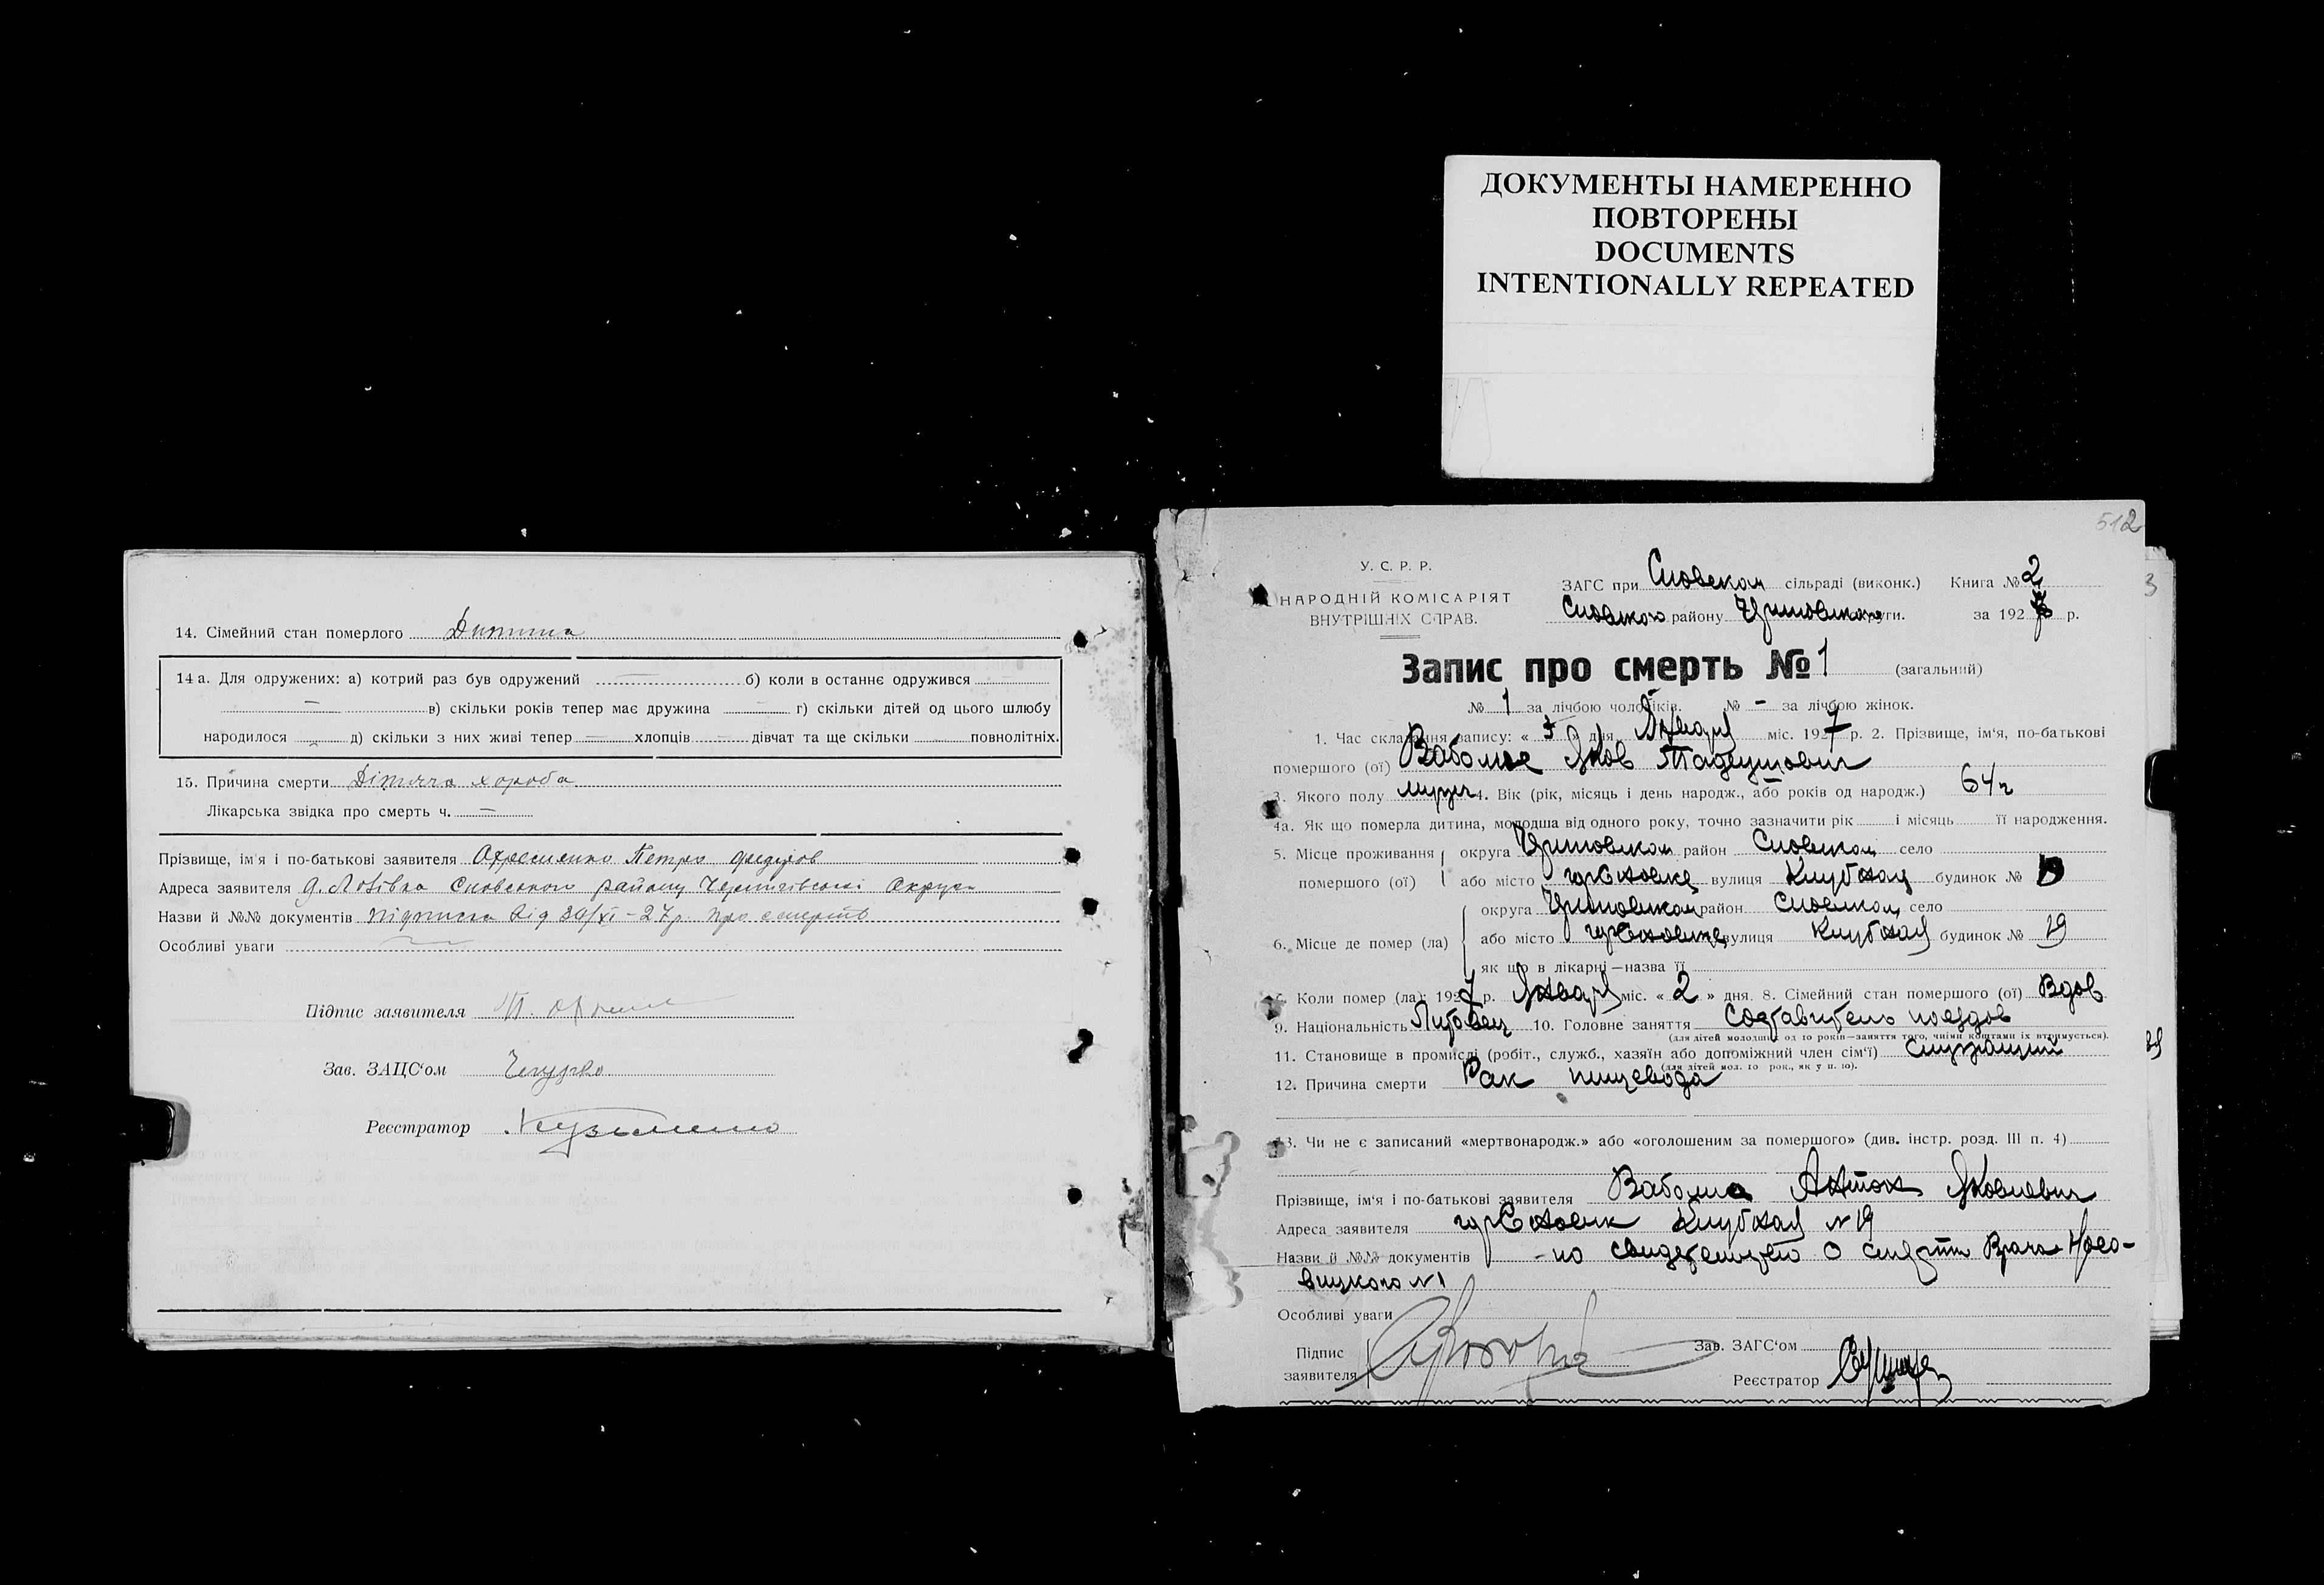 ДОКУМЕНТЫ НАМЕРЕННО
ПОВТОРЕНЫ
DOCUMENTS
INTENTIONALLY REPEATED
14. Сімейний стан померлого Дитина
14 а. Для одружених: а) котрий раз був одружений — б) коли в останнє одружився
— в) скільки років тепер має дружина — г) скільки дітей од цього шлюбу
народилося — д) скільки з них живі тепер — хлопців — дівчат та ще скільки — повнолітніх.
15. Причина смерти Дітяча хороба
Лікарська звідка про смерть ч. —
Прізвище, ім'я і по-батькові заявителя Петро
Адреса заявителя Сновського району Чернігівської Округи
Назви й №№ документів Підписка від 30/XI-27р. про смерть
Особливі уваги
Підпис заявителя
Зав. ЗАЦС'ом
Реєстратор Кузьменко
512
3
У. С. Р. Р.
НАРОДНІЙ КОМІСАРІЯТ
ВНУТРІШНІХ СПРАВ.
ЗАГС при Сновском сільраді (виконк.) Книга № 2
Сновского району округи. за 1927 р.
Запис про смерть № 1 (загальний)
№ 1 за лічбою чоловіків. № - за лічбою жінок.
1. Час складання запису: « 3 » дня Января міс. 1927 р. 2. Прізвище, ім'я, по-батькові
помершого (ої) Яков Тадеушович
3. Якого полу мужеч 4. Вік (рік, місяць і день народж., або років од народж.) 64 г
4а. Як що померла дитина, молодша від одного року, точно зазначити рік і місяць її народження.
5. Місце проживання округа район Сновском село
помершого (ої) або місто гор Сновске вулиця Клубная будинок № 19
округа район Сновском село
6. Місце де помер (ла) або місто гор Сновске вулиця Клубная будинок № 19
як що в лікарні—назва її
7. Коли помер (ла): 1927 р. Января міс. « 2 » дня. 8. Сімейний стан помершого (ої) Вдов
9. Національність Литовец 10. Головне заняття Составитель поездов
(для дітей молодших од 10 років—заняття того, чиїми коштами їх втримується).
11. Становище в промислі (робіт., служб., хазяїн або допоміжний член сім'ї) служащий
(для дітей мол. 10 рок., як у п. 10).
12. Причина смерти Рак пищевода
13. Чи не є записаний «мертвонародж.» або «оголошеним за помершого» (див. інстр. розд. III п. 4)
Прізвище, ім'я і по-батькові заявителя Антон Яковлевич
Адреса заявителя гор Сновск Клубная № 19
Назви й №№ документів - но свидетельство о смерти Врача
№ 1
Особливі уваги
Підпис
заявителя
Зав. ЗАГС'ом
Реєстратор